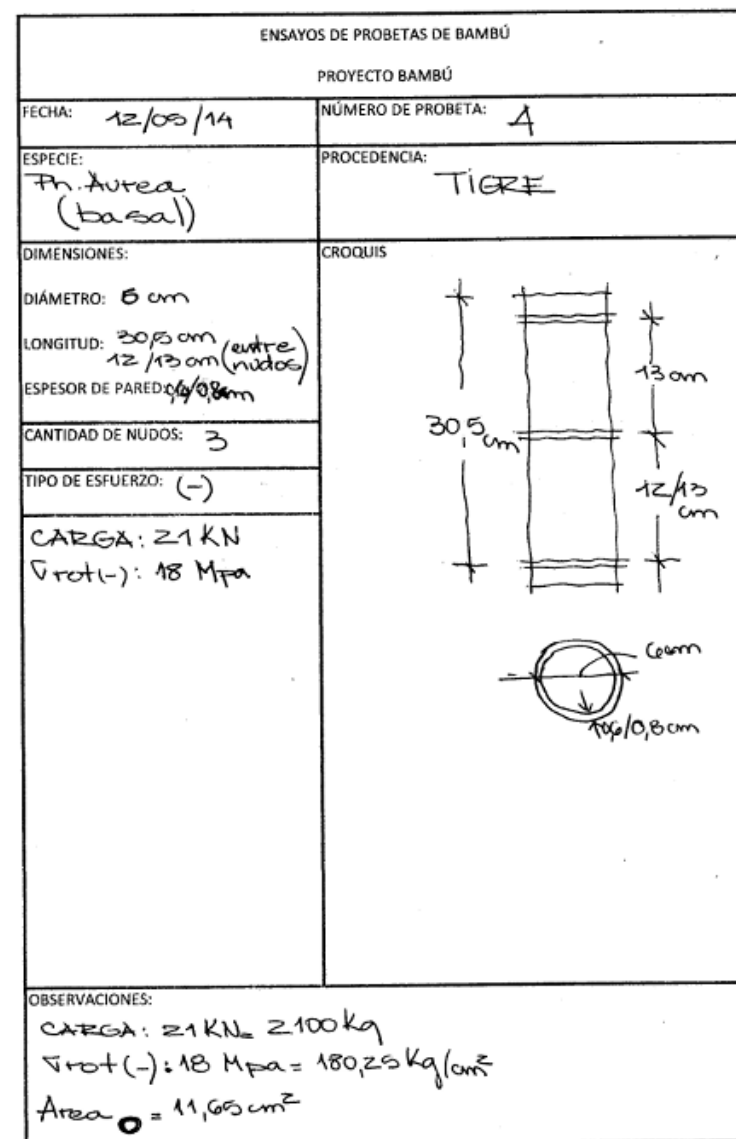 ENSAYOS DE PROBETAS DE BAMBÚ
PROYECTO BAMBÚ
FECHA: 12/05/14
NÚMERO DE PROBETA:
ESPECIE:
Ph. Aurea
(basal)
PROCEDENCIA:
TIGRE
DIMENSIONES:
DIÁMETRO: cm
LONGITUD: 30,5 cm
12/13 cm (entre nudos)
ESPESOR DE PARED: /0,8cm
CANTIDAD DE NUDOS: 3
TIPO DE ESFUERZO: (-)
CARGA: 21 KN
σrot(-): 18 Mpa
CROQUIS
13 cm
30,5 cm
12/13 cm
cm
/0,8 cm
OBSERVACIONES:
CARGA: 21 KN= 2100 kg
σrot(-): 18 Mpa = 180,25 Kg/cm²
Area = 11,65 cm²